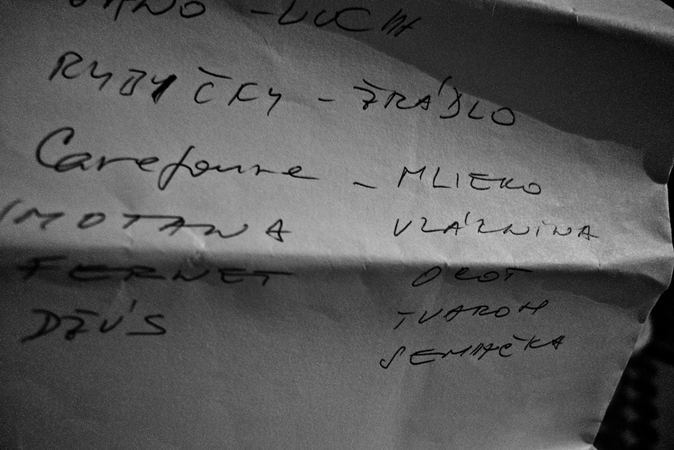 RYBYČKY - ŽRÁDLO
Carefoure - MLIEKO
MOTANA
VLÁKNINA
FERNET
OCOT
DŽÚS
TVAROH
SEMIAČKA